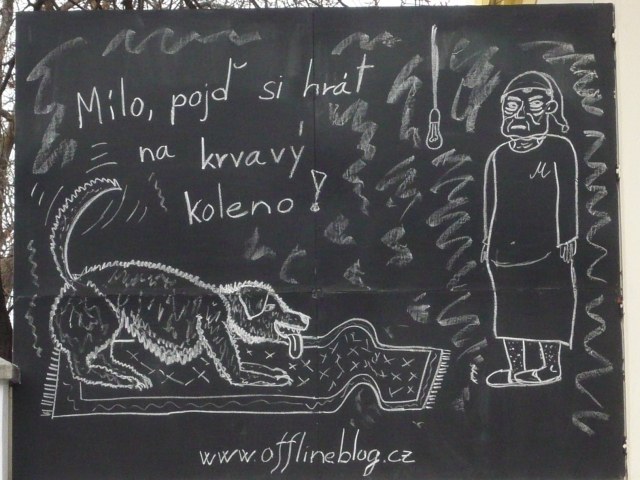 Mílo, pojď si hrát
na krvavý
koleno!
M
www.offlineblog.cz